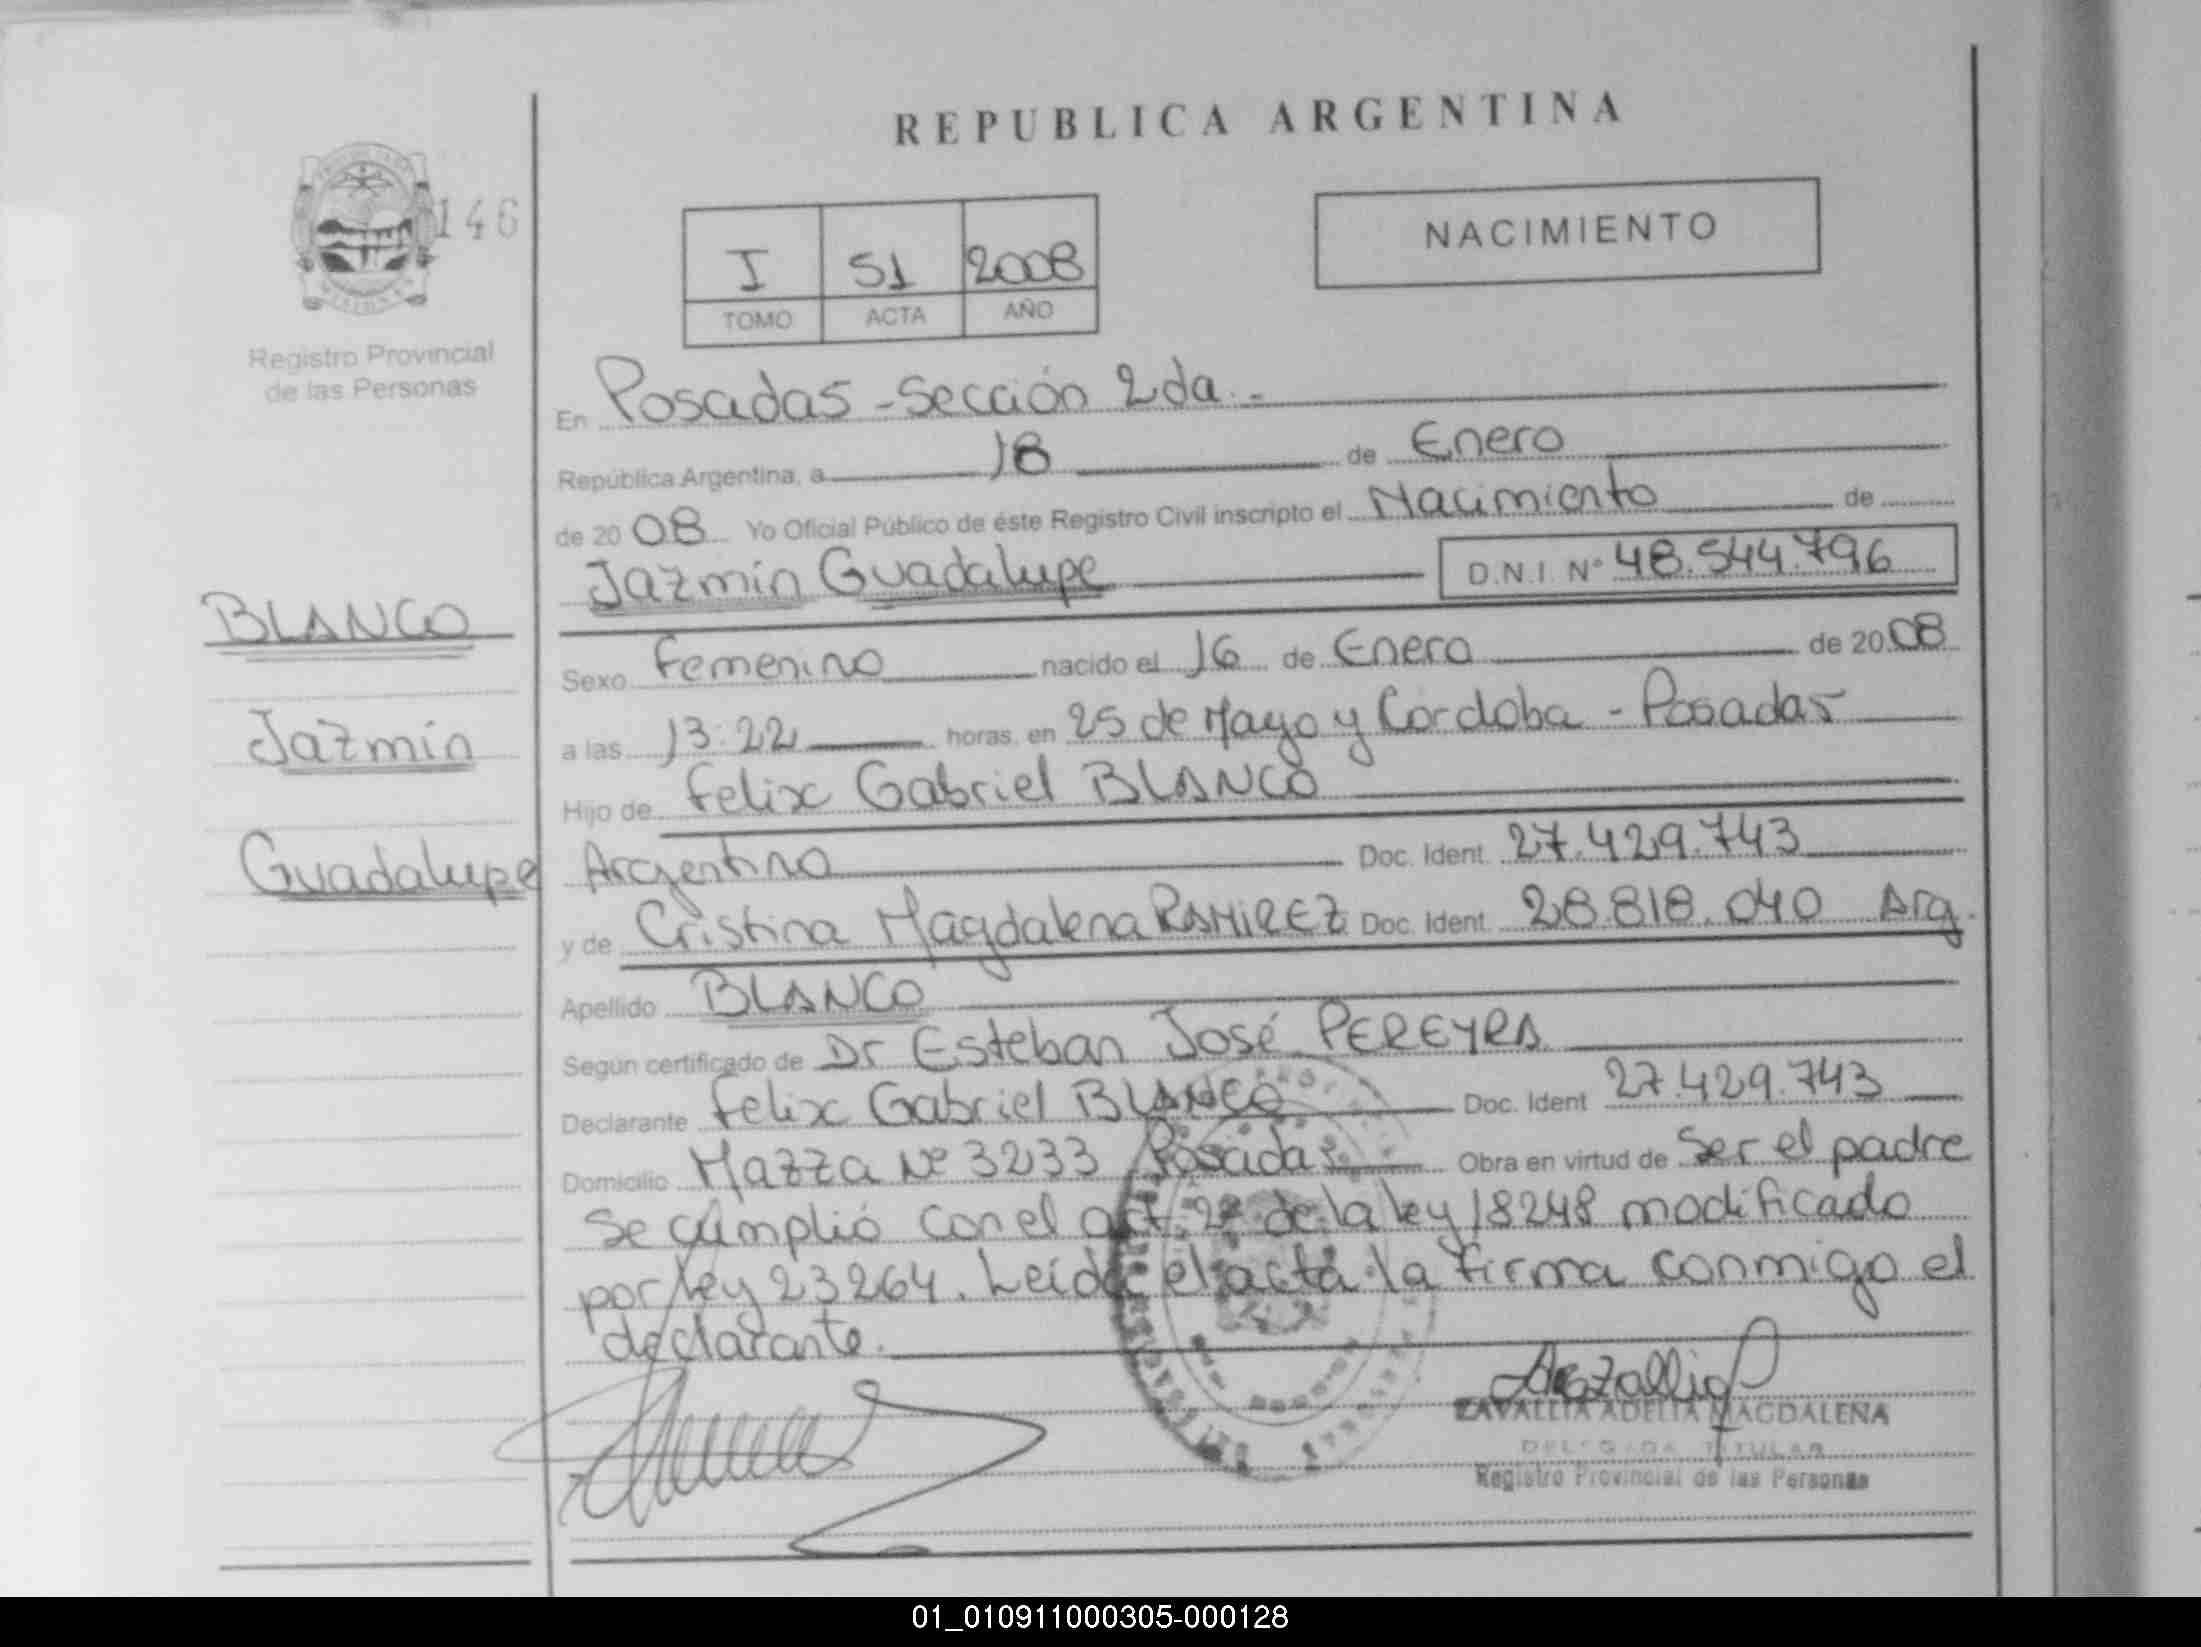 REPUBLICA ARGENTINA
146
I 51 2008
TOMO ACTA AÑO
NACIMIENTO
MISIONES
Registro Provincial
de las Personas
En Posadas - Sección 2da. -
República Argentina, a 18 de Enero
de 2008 Yo Oficial Público de éste Registro Civil inscripto el Nacimiento de
Jazmín Guadalupe D.N.I. Nº 48.544.796
BLANCO
Jazmín
Guadalupe
Sexo Femenino nacido el 16 de Enero de 2008
a las 13:22 horas, en 25 de Mayo y Córdoba - Posadas
Hijo de Felix Gabriel BLANCO
Argentino Doc. Ident. 27.429.743
y de Cristina Magdalena RAMIREZ Doc. Ident. 28.818.040 Arg.
Apellido BLANCO
Según certificado de Dr Esteban José PEREYRA
Declarante Felix Gabriel BLANCO Doc. Ident 27.429.743
Domicilio Mazza Nº 3233 Posadas Obra en virtud de Ser el padre
Se cumplió con el art. 2º de la ley 18248 modificado
por ley 23264. Leída el acta la firma conmigo el
declarante.
ZAVALLIA ADELIA MAGDALENA
DELEGADA TITULAR
Registro Provincial de las Personas
01_010911000305-000128